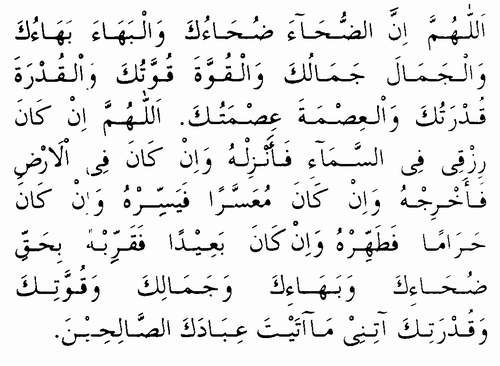 اَللّٰهُمَّ اِنَّ الضُّحَآءَ ضُحَاءُكَ وَالْبَهَاءَ بَهَاءُكَ
وَالْجَمَالَ جَمَالُكَ وَالْقُوَّةَ قُوَّتُكَ وَالْقُدْرَةَ
قُدْرَتُكَ وَالْعِصْمَةَ عِصْمَتُكَ. اَللّٰهُمَّ اِنْ كَانَ
رِزْقِى فِى السَّمَآءِ فَأَنْزِلْهُ وَاِنْ كَانَ فِى اْلاَرْضِ
فَأَخْرِجْهُ وَاِنْ كَانَ مُعَسَّرًا فَيَسِّرْهُ وَاِنْ كَانَ
حَرَامًا فَطَهِّرْهُ وَاِنْ كَانَ بَعِيْدًا فَقَرِّبْهُ بِحَقِّ
ضُحَاءِكَ وَبَهَاءِكَ وَجَمَالِكَ وَقُوَّتِكَ
وَقُدْرَتِكَ آتِنِىْ مَآاَتَيْتَ عِبَادَكَ الصَّالِحِيْنَ.